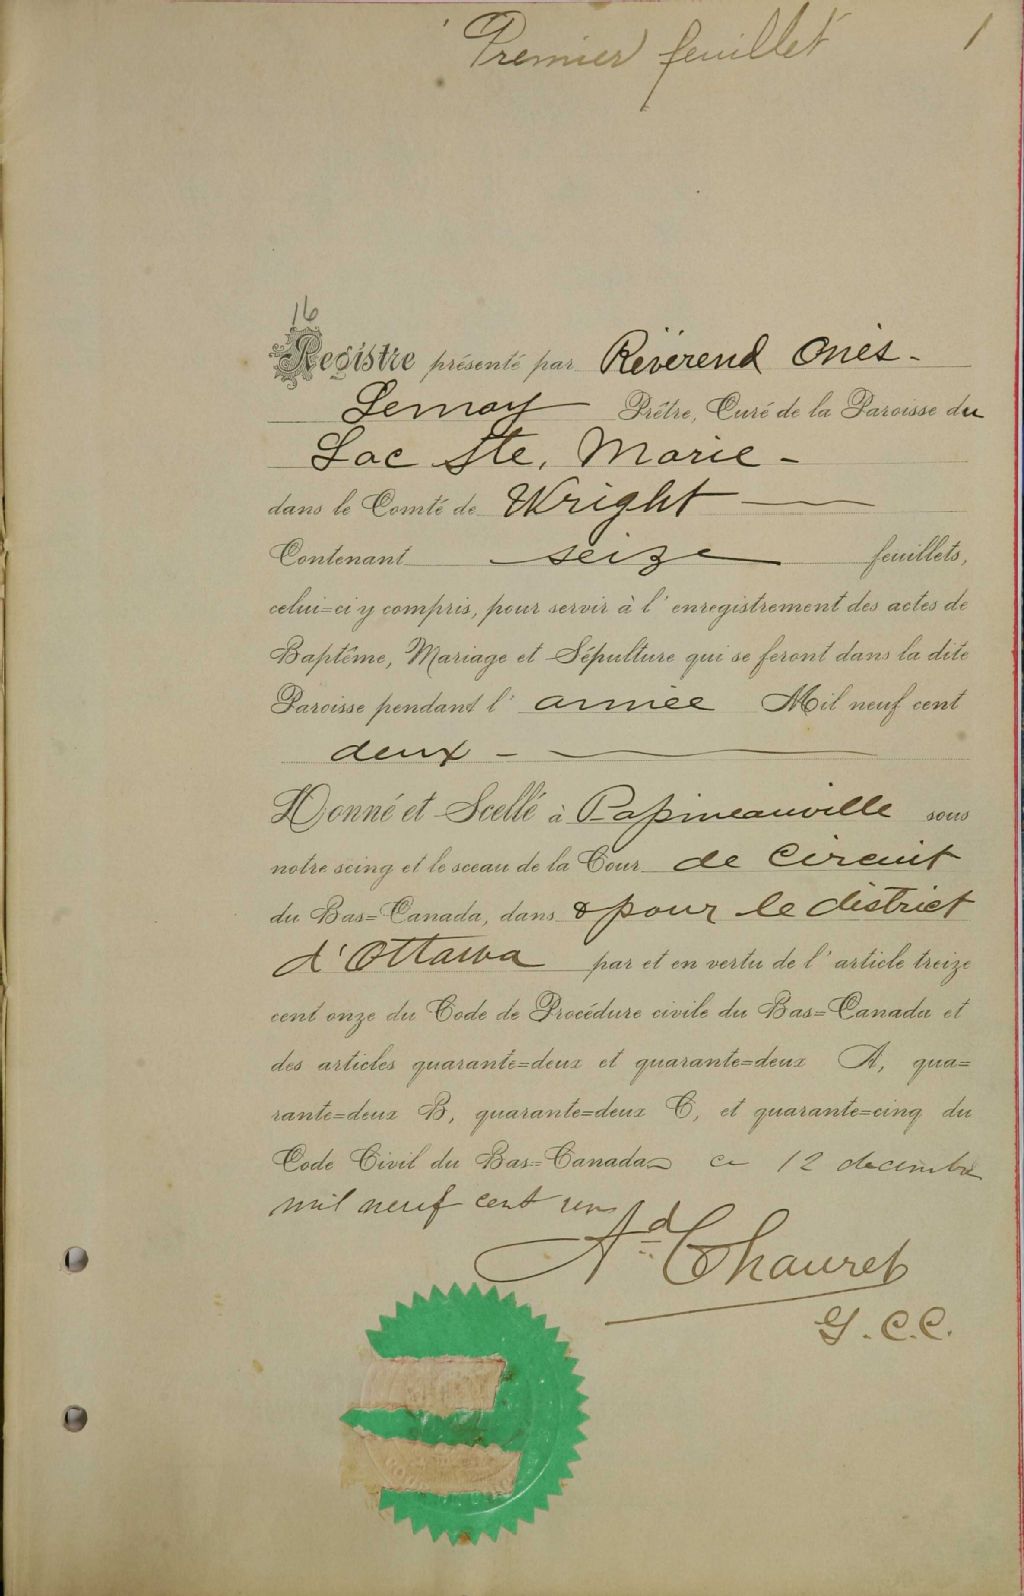 Premier feuillet 1
16
Registre présenté par Révérend Onès-
Lemay Prêtre, Curé de la Paroisse du
Lac Ste. Marie -
dans le Comté de Wright
Contenant seize feuillets,
celui=ci y compris, pour servir à l'enregistrement des actes de
Baptême, Mariage et Sépulture qui se feront dans la dite
Paroisse pendant l'année Mil neuf cent
deux -
Donné et Scellé à Papineauville sous
notre seing et le sceau de la Cour de Circuit
du Bas=Canada, dans & pour le district
d'Ottawa par et en vertu de l'article treize
cent onze du Code de Procédure civile du Bas=Canada et
des articles quarante=deux et quarante=deux A, qua=
rante=deux B, quarante=deux C, et quarante=cinq du
Code Civil du Bas=Canada ce 12 decembre
mil neuf cent un
Ad Chauret
G.C.C.